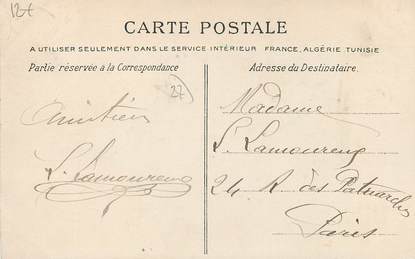 127
CARTE POSTALE
A UTILISER SEULEMENT DANS LE SERVICE INTÉRIEUR FRANCE, ALGÉRIE TUNISIE
Partie réservée à la Correspondance
27
Amitiés
S. Lamoureux
Adresse du Destinataire.
Madame
S. Lamoureux
24 R. des Patriarches
Paris